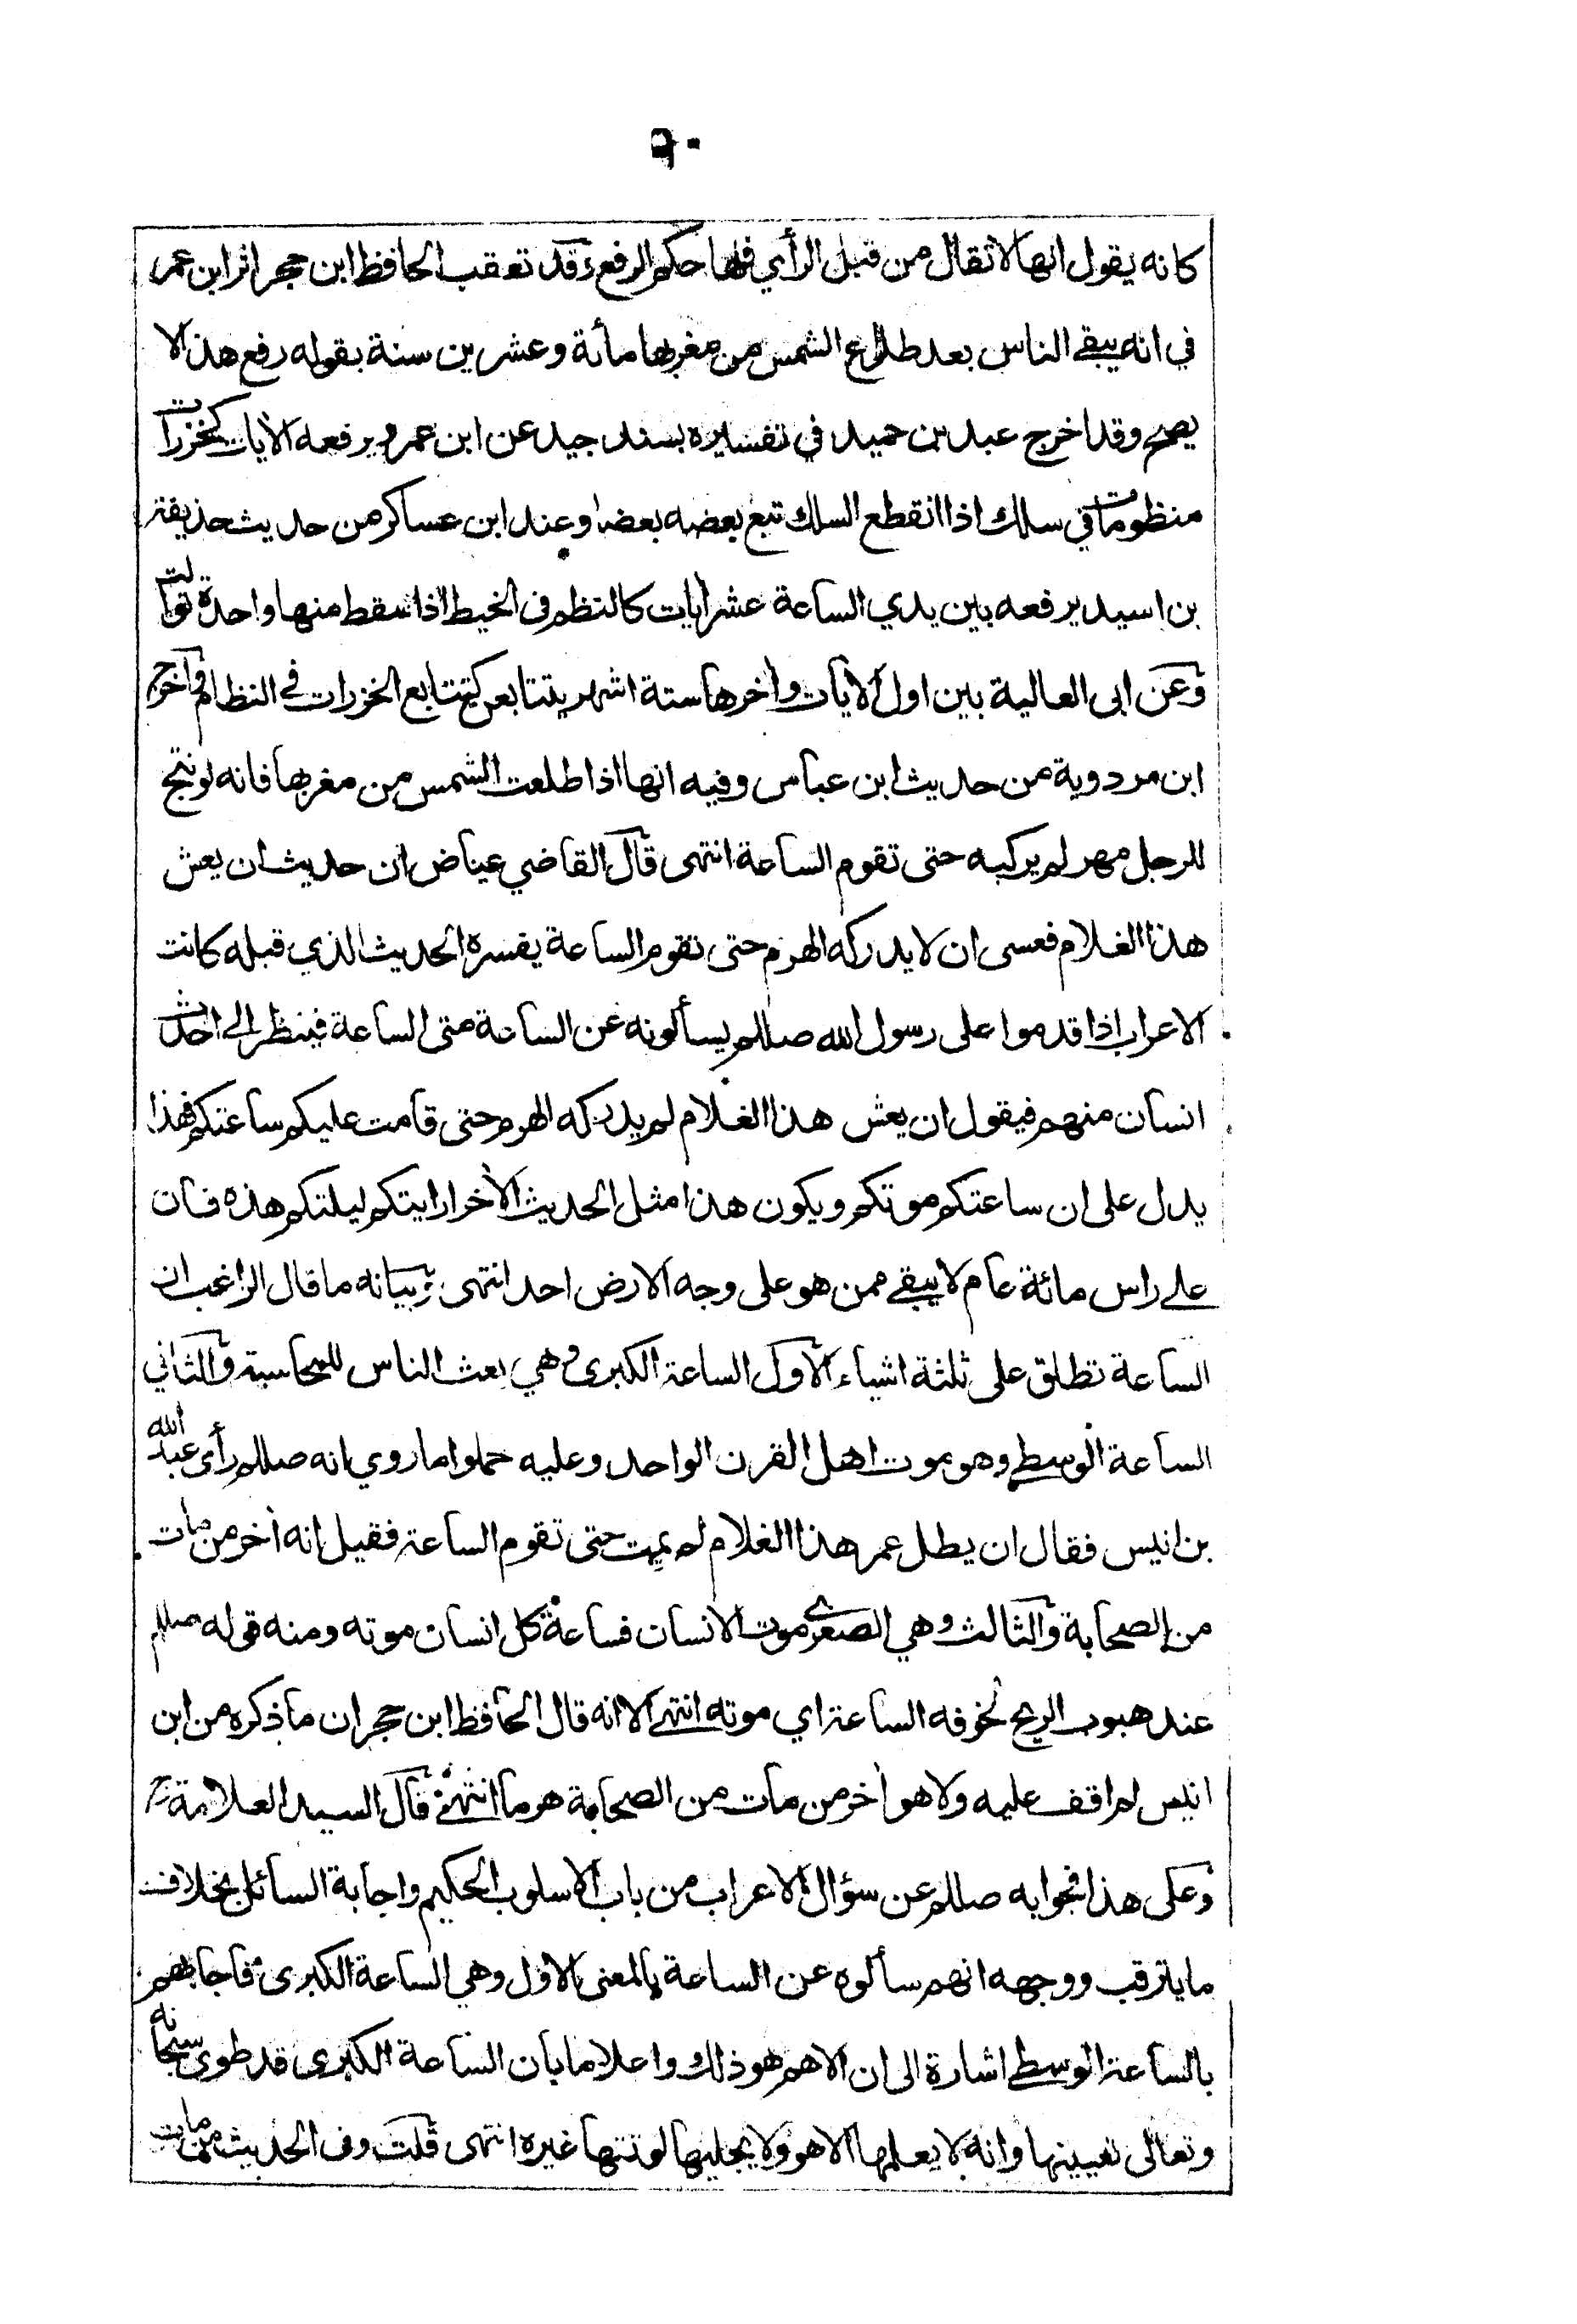 ٦٠
كانه يقول انها لا تقال من قبل الرأي فلها حكم الرفع وقد تعقب الحافظ ابن حجر اثر ابن عمر
في انه يبقى الناس بعد طلوع الشمس من مغربها مأة وعشرين سنة بقوله رفع هذا لا
يصح وقد اخرج عبد بن حميد في تفسيره بسند جيد عن ابن عمرو يرفعه الايات كخزرات
منظومات في سلك اذا انقطع السلك تبع بعضه بعضا وعند ابن عساكر من حديث حذيفة
بن اسيد يرفعه بين يدي الساعة عشر ايات كالنظم في الخيط اذا سقط منها واحدة توالت
وعن ابي العالية بين اول الايات وأخرها ستة اشهر يتتابعن كتتابع الخزرات في النظام واخرج
ابن مردوية من حديث ابن عباس وفيه انها اذا طلعت الشمس من مغربها فانه لو نتج
للرجل مهر لم يركبه حتى تقوم الساعة انتهى قال القاضي عياض ان حديث ان يعش
هذا الغلام فعسى ان لا يدركه الهرم حتى تقوم الساعة يفسره الحديث الذي قبله كانت
الاعراب اذا قدموا على رسول الله صللم يسألونه عن الساعة متى الساعة فينظر الى احدث
انسان منهم فيقول ان يعش هذا الغلام لم يدركه الهرم حتى قامت عليكم ساعتكم فهذا
يدل على ان ساعتكم موتكم ويكون هذا مثل الحديث الأخر ارايتكم ليلتكم هذه فان
على راس مائة عام لا يبقى ممن هو على وجه الارض احد انتهى وبيانه ما قال الراغب ان
الساعة تطلق على ثلثة اشياء الاول الساعة الكبرى وهي بعث الناس للمحاسبة والثاني
الساعة الوسطى وهو موت اهل القرن الواحد وعليه حملوا ما روي انه صللم رأى عبد الله
بن انيس فقال ان يطل عمر هذا الغلام لم يمت حتى تقوم الساعة فقيل انه أخر من مات
من الصحابة والثالث وهي الصغرى موت الانسان فساعة كل انسان موته ومنه قوله صللم
عند هبوب الريح تخوفه الساعة اي موته انتهى الا انه قال الحافظ ابن حجر ان ما ذكره من ابن
انيس لم اقف عليه ولا هو أخر من مات من الصحابة هرما انتهى قال السيد العلامة رح
وعلى هذا فجوابه صللم عن سؤال الاعراب من باب الاسلوب الحكيم واجابة السائل بخلاف
ما يترقب ووجهه انهم سألوه عن الساعة بالمعنى الاول وهي الساعة الكبرى فاجابهم
بالساعة الوسطى اشارة الى ان الاهم هو ذلك واعلاما بان الساعة الكبرى قد طوى سبحانه
وتعالى تعيينها وانه لا يعلمها الا هو ولا يجليها لوقتها غيره انتهى قلت وفي الحديث من مات